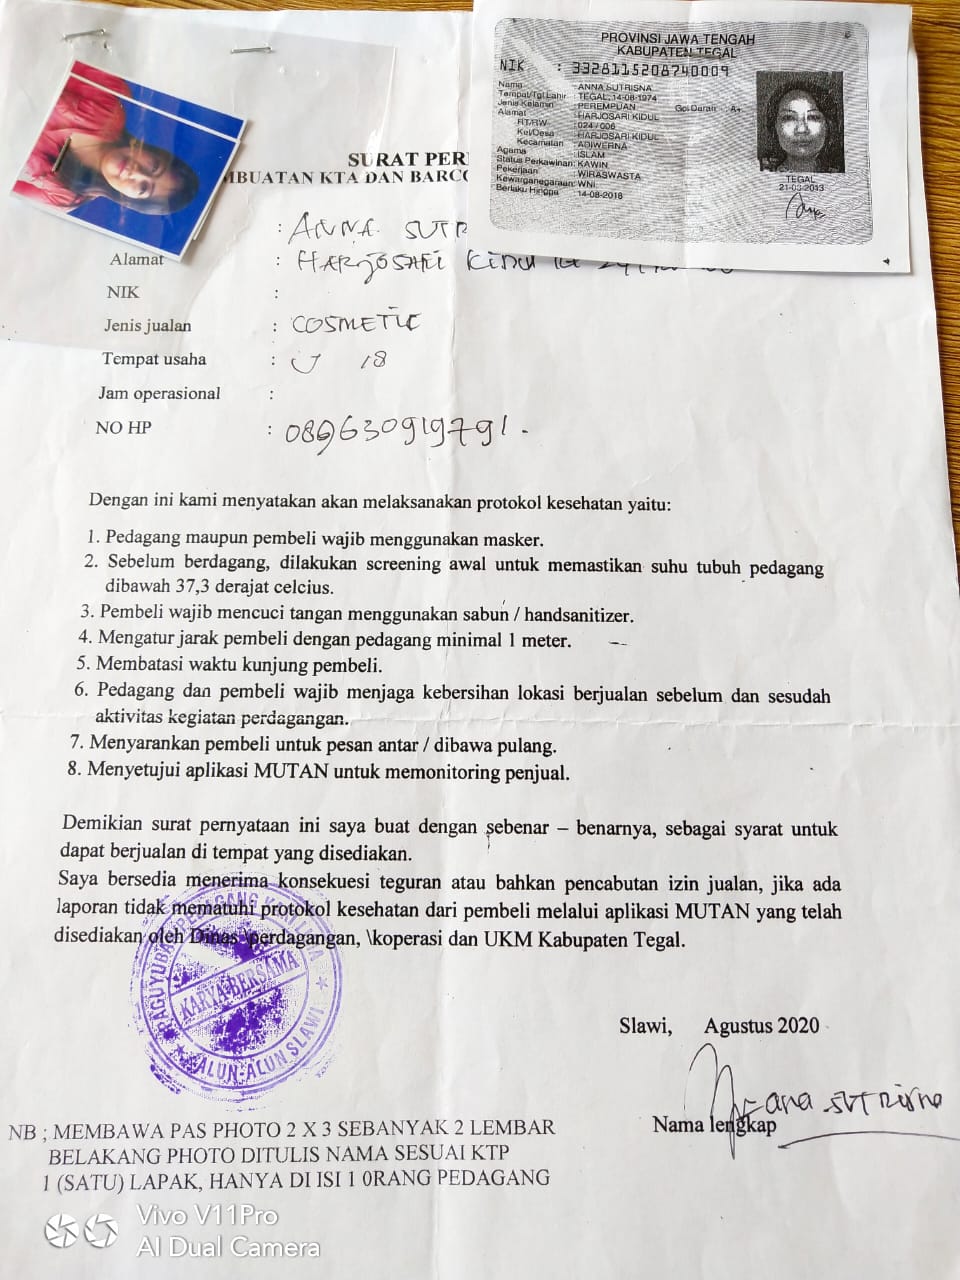 PROVINSI JAWA TENGAH
KABUPATEN TEGAL
NIK : 3328115208740009
Nama : ANNA SUTRISNA
Tempat/Tgl Lahir : TEGAL, 14-08-1974
Jenis Kelamin : PEREMPUAN Gol Darah : A+
Alamat : HARJOSARI KIDUL
RT/RW : 024 / 006
Kel/Desa : HARJOSARI KIDUL
Kecamatan : ADIWERNA
Agama : ISLAM
Status Perkawinan: KAWIN
Pekerjaan : WIRASWASTA
Kewarganegaraan: WNI
Berlaku Hingga : 14-08-2018
TEGAL
21-03-2013
SURAT PER
MBUATAN KTA DAN BARCO
: ANNA SUTR
Alamat : HARJOSARI KIDUL
NIK :
Jenis jualan : COSMETIC
Tempat usaha : 18
Jam operasional :
NO HP : 089630919791.
Dengan ini kami menyatakan akan melaksanakan protokol kesehatan yaitu:
1. Pedagang maupun pembeli wajib menggunakan masker.
2. Sebelum berdagang, dilakukan screening awal untuk memastikan suhu tubuh pedagang
dibawah 37,3 derajat celcius.
3. Pembeli wajib mencuci tangan menggunakan sabun / handsanitizer.
4. Mengatur jarak pembeli dengan pedagang minimal 1 meter.
5. Membatasi waktu kunjung pembeli.
6. Pedagang dan pembeli wajib menjaga kebersihan lokasi berjualan sebelum dan sesudah
aktivitas kegiatan perdagangan.
7. Menyarankan pembeli untuk pesan antar / dibawa pulang.
8. Menyetujui aplikasi MUTAN untuk memonitoring penjual.
Demikian surat pernyataan ini saya buat dengan sebenar – benarnya, sebagai syarat untuk
dapat berjualan di tempat yang disediakan.
Saya bersedia menerima konsekuesi teguran atau bahkan pencabutan izin jualan, jika ada
laporan tidak mematuhi protokol kesehatan dari pembeli melalui aplikasi MUTAN yang telah
disediakan oleh Dinas \perdagangan, \koperasi dan UKM Kabupaten Tegal.
PAGUYUBAN PEDAGANG KAKI LIMA
KARYA BERSAMA
ALUN-ALUN SLAWI
Slawi, Agustus 2020
ana SUTRisna
Nama lengkap
NB ; MEMBAWA PAS PHOTO 2 X 3 SEBANYAK 2 LEMBAR
BELAKANG PHOTO DITULIS NAMA SESUAI KTP
1 (SATU) LAPAK, HANYA DI ISI 1 0RANG PEDAGANG
Vivo V11Pro
AI Dual Camera